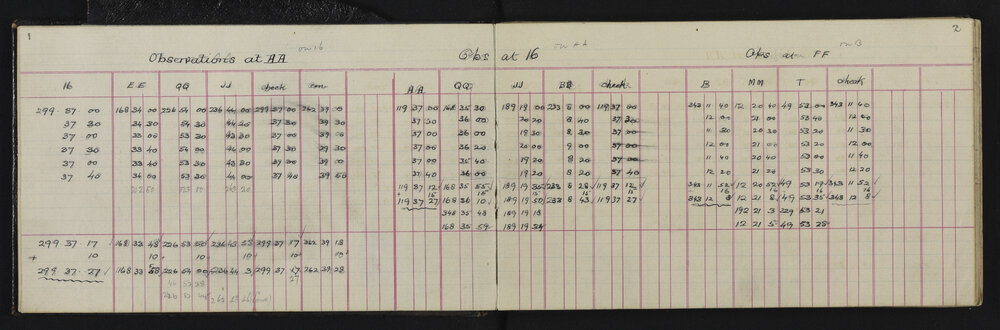 1
2
Observations at AA
on 16
Obs at 16
on AA
Obs at FF
on B
16 EE QQ JJ check
AA QQ JJ BB check
B MM T check
299 37 00 168 34 00 226 54 00 236 44 00 299 37 00 262 39 00
119 37 00 168 35 30 189 19 00 233 8 00 119 37 00
343 11 40 12 20 40 49 53 00 343 11 40
37 30 34 30 54 30 44 20 37 30 39 30
37 30 36 00 20 20 8 40 37 30
12 00 21 00 53 40 12 00
37 00 33 00 53 30 37 00 39 00
37 00 36 00 19 30 8 30 37 00
11 30 20 30 53 20 11 30
37 30 33 40 54 00 37 30 39 30
37 00 36 20 20 00 9 00 37 00
12 00 21 00 53 20 12 00
37 00 33 40 53 30 37 00 39 00
37 00 35 40 19 20 8 20 37 00
11 40 20 40 53 00 11 40
37 40 33 40 53 30 37 40 39 50
37 40 36 00 19 20 8 20 37 40
12 20 21 00 53 30 12 20
119 37 12 168 35 55 189 19 35 233 8 28 119 37 12
343 11 52 12 20 52 49 53 19 343 11 52
+ 15 15 15 15 15
16 16 16 16
119 37 27 168 36 10 189 19 50 233 8 43 119 37 27
343 12 8 12 21 8 49 53 35 343 12 8
348 35 48 189 19 18
192 21 3 229 53 21
168 35 59 189 19 34
12 21 5 49 53 28
299 37 17 168 33 48 226 53 50 299 37 17 262 39 18
+ 10 10 10 10 10 10
299 37 27 226 54 00 236 44 3 299 37 27 262 39 28